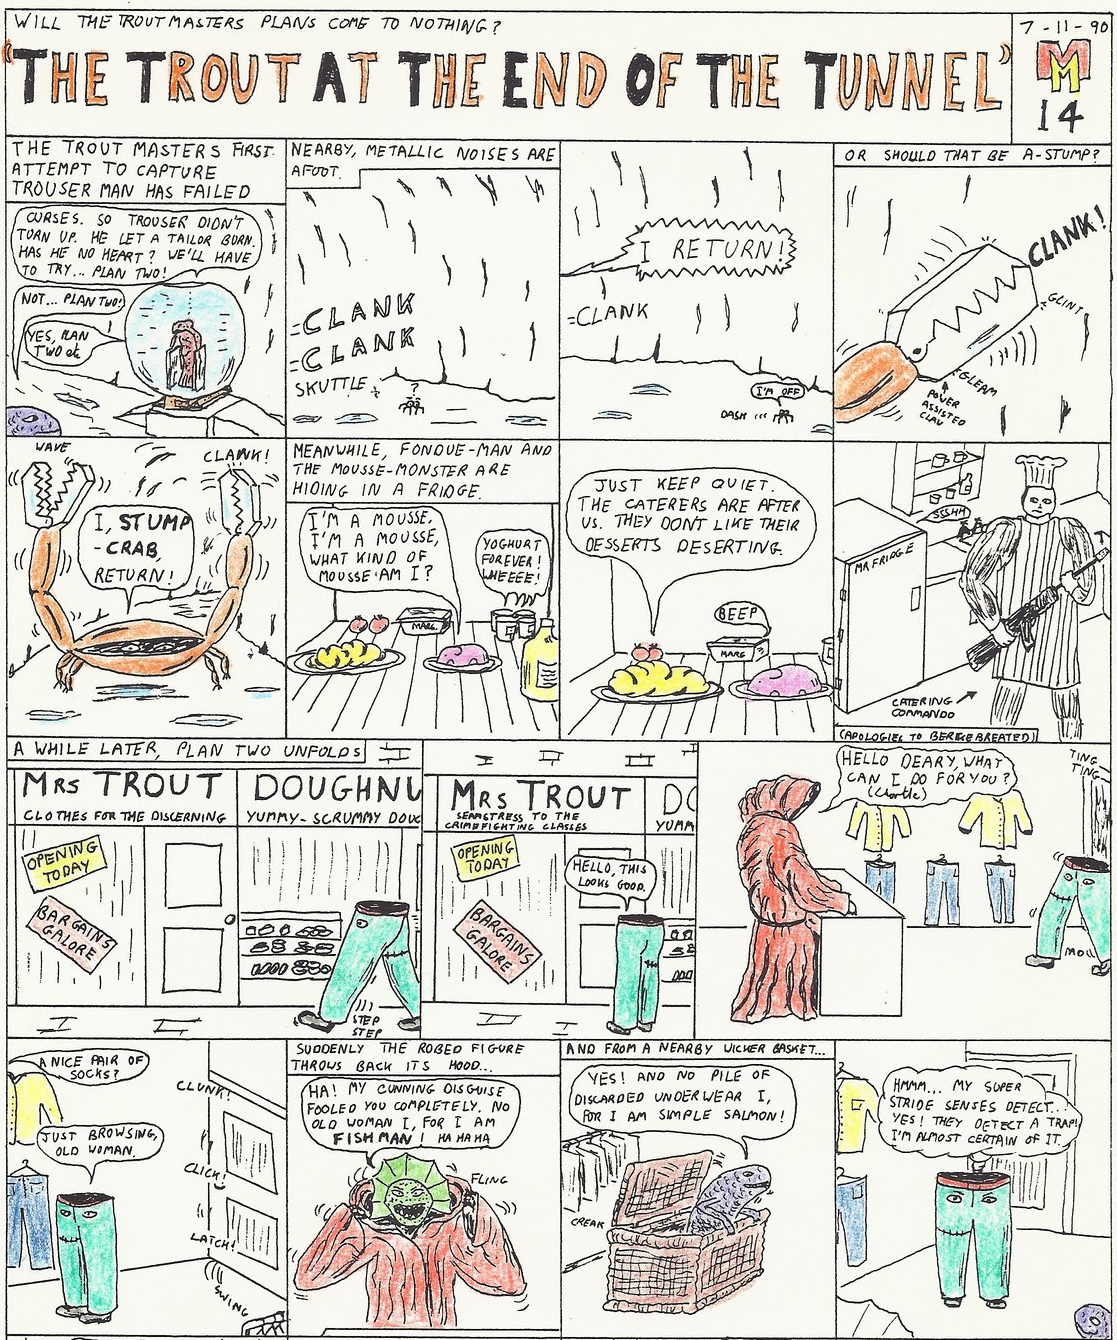 WILL THE TROUTMASTERS PLANS COME TO NOTHING?
"THE TROUT AT THE END OF THE TUNNEL"
7-11-90
M
M
14
THE TROUT MASTERS FIRST
ATTEMPT TO CAPTURE
TROUSER MAN HAS FAILED
CURSES. SO TROUSER DIDN'T
TURN UP. HE LET A TAILOR BURN.
HAS HE NO HEART? WE'LL HAVE
TO TRY... PLAN TWO!
NOT... PLAN TWO!
YES, PLAN
TWO
NEARBY, METALLIC NOISES ARE
AFOOT.
CLANK
CLANK
SKUTTLE
?
I RETURN!
CLANK
I'M OFF
DASH
OR SHOULD THAT BE A-STUMP?
CLANK!
GLINT
GLEAM
POWER
ASSISTED
CLAW
WAVE
CLANK!
I, STUMP
-CRAB,
RETURN!
MEANWHILE, FONDUE-MAN AND
THE MOUSSE-MONSTER ARE
HIDING IN A FRIDGE.
I'M A MOUSSE,
I'M A MOUSSE,
WHAT KIND OF
MOUSSE AM I?
YOGHURT
FOREVER!
WHEEEE!
MARG.
JUST KEEP QUIET.
THE CATERERS ARE AFTER
US. THEY DON'T LIKE THEIR
DESSERTS DESERTING.
BEEP
MARG
SSSHH
MR FRIDGE
CATERING
COMMANDO
(APOLOGIES TO
A WHILE LATER, PLAN TWO UNFOLDS
MRS TROUT
CLOTHES FOR THE DISCERNING
DOUGHNU
YUMMY-SCRUMMY DOUG
OPENING
TODAY
BARGAINS
GALORE
STEP
STEP
MRS TROUT
SEAMSTRESS TO THE
CRIMEFIGHTING CLASSES
DO
YUMM
OPENING
TODAY
BARGAINS
GALORE
HELLO, THIS
LOOKS GOOD.
HELLO DEARY, WHAT
CAN I DO FOR YOU?
(Chortle)
TING
TING
A NICE PAIR OF
SOCKS?
JUST BROWSING,
OLD WOMAN.
CLUNK!
CLICK!
LATCH!
SWING
SUDDENLY THE ROBED FIGURE
THROWS BACK ITS HOOD...
HA! MY CUNNING DISGUISE
FOOLED YOU COMPLETELY. NO
OLD WOMAN I, FOR I AM
FISHMAN! HA HA HA
FLING
AND FROM A NEARBY WICKER BASKET...
YES! AND NO PILE OF
DISCARDED UNDERWEAR I,
FOR I AM SIMPLE SALMON!
CREAK
HMMM... MY SUPER
STRIDE SENSES DETECT...
YES! THEY DETECT A TRAP!
I'M ALMOST CERTAIN OF IT.